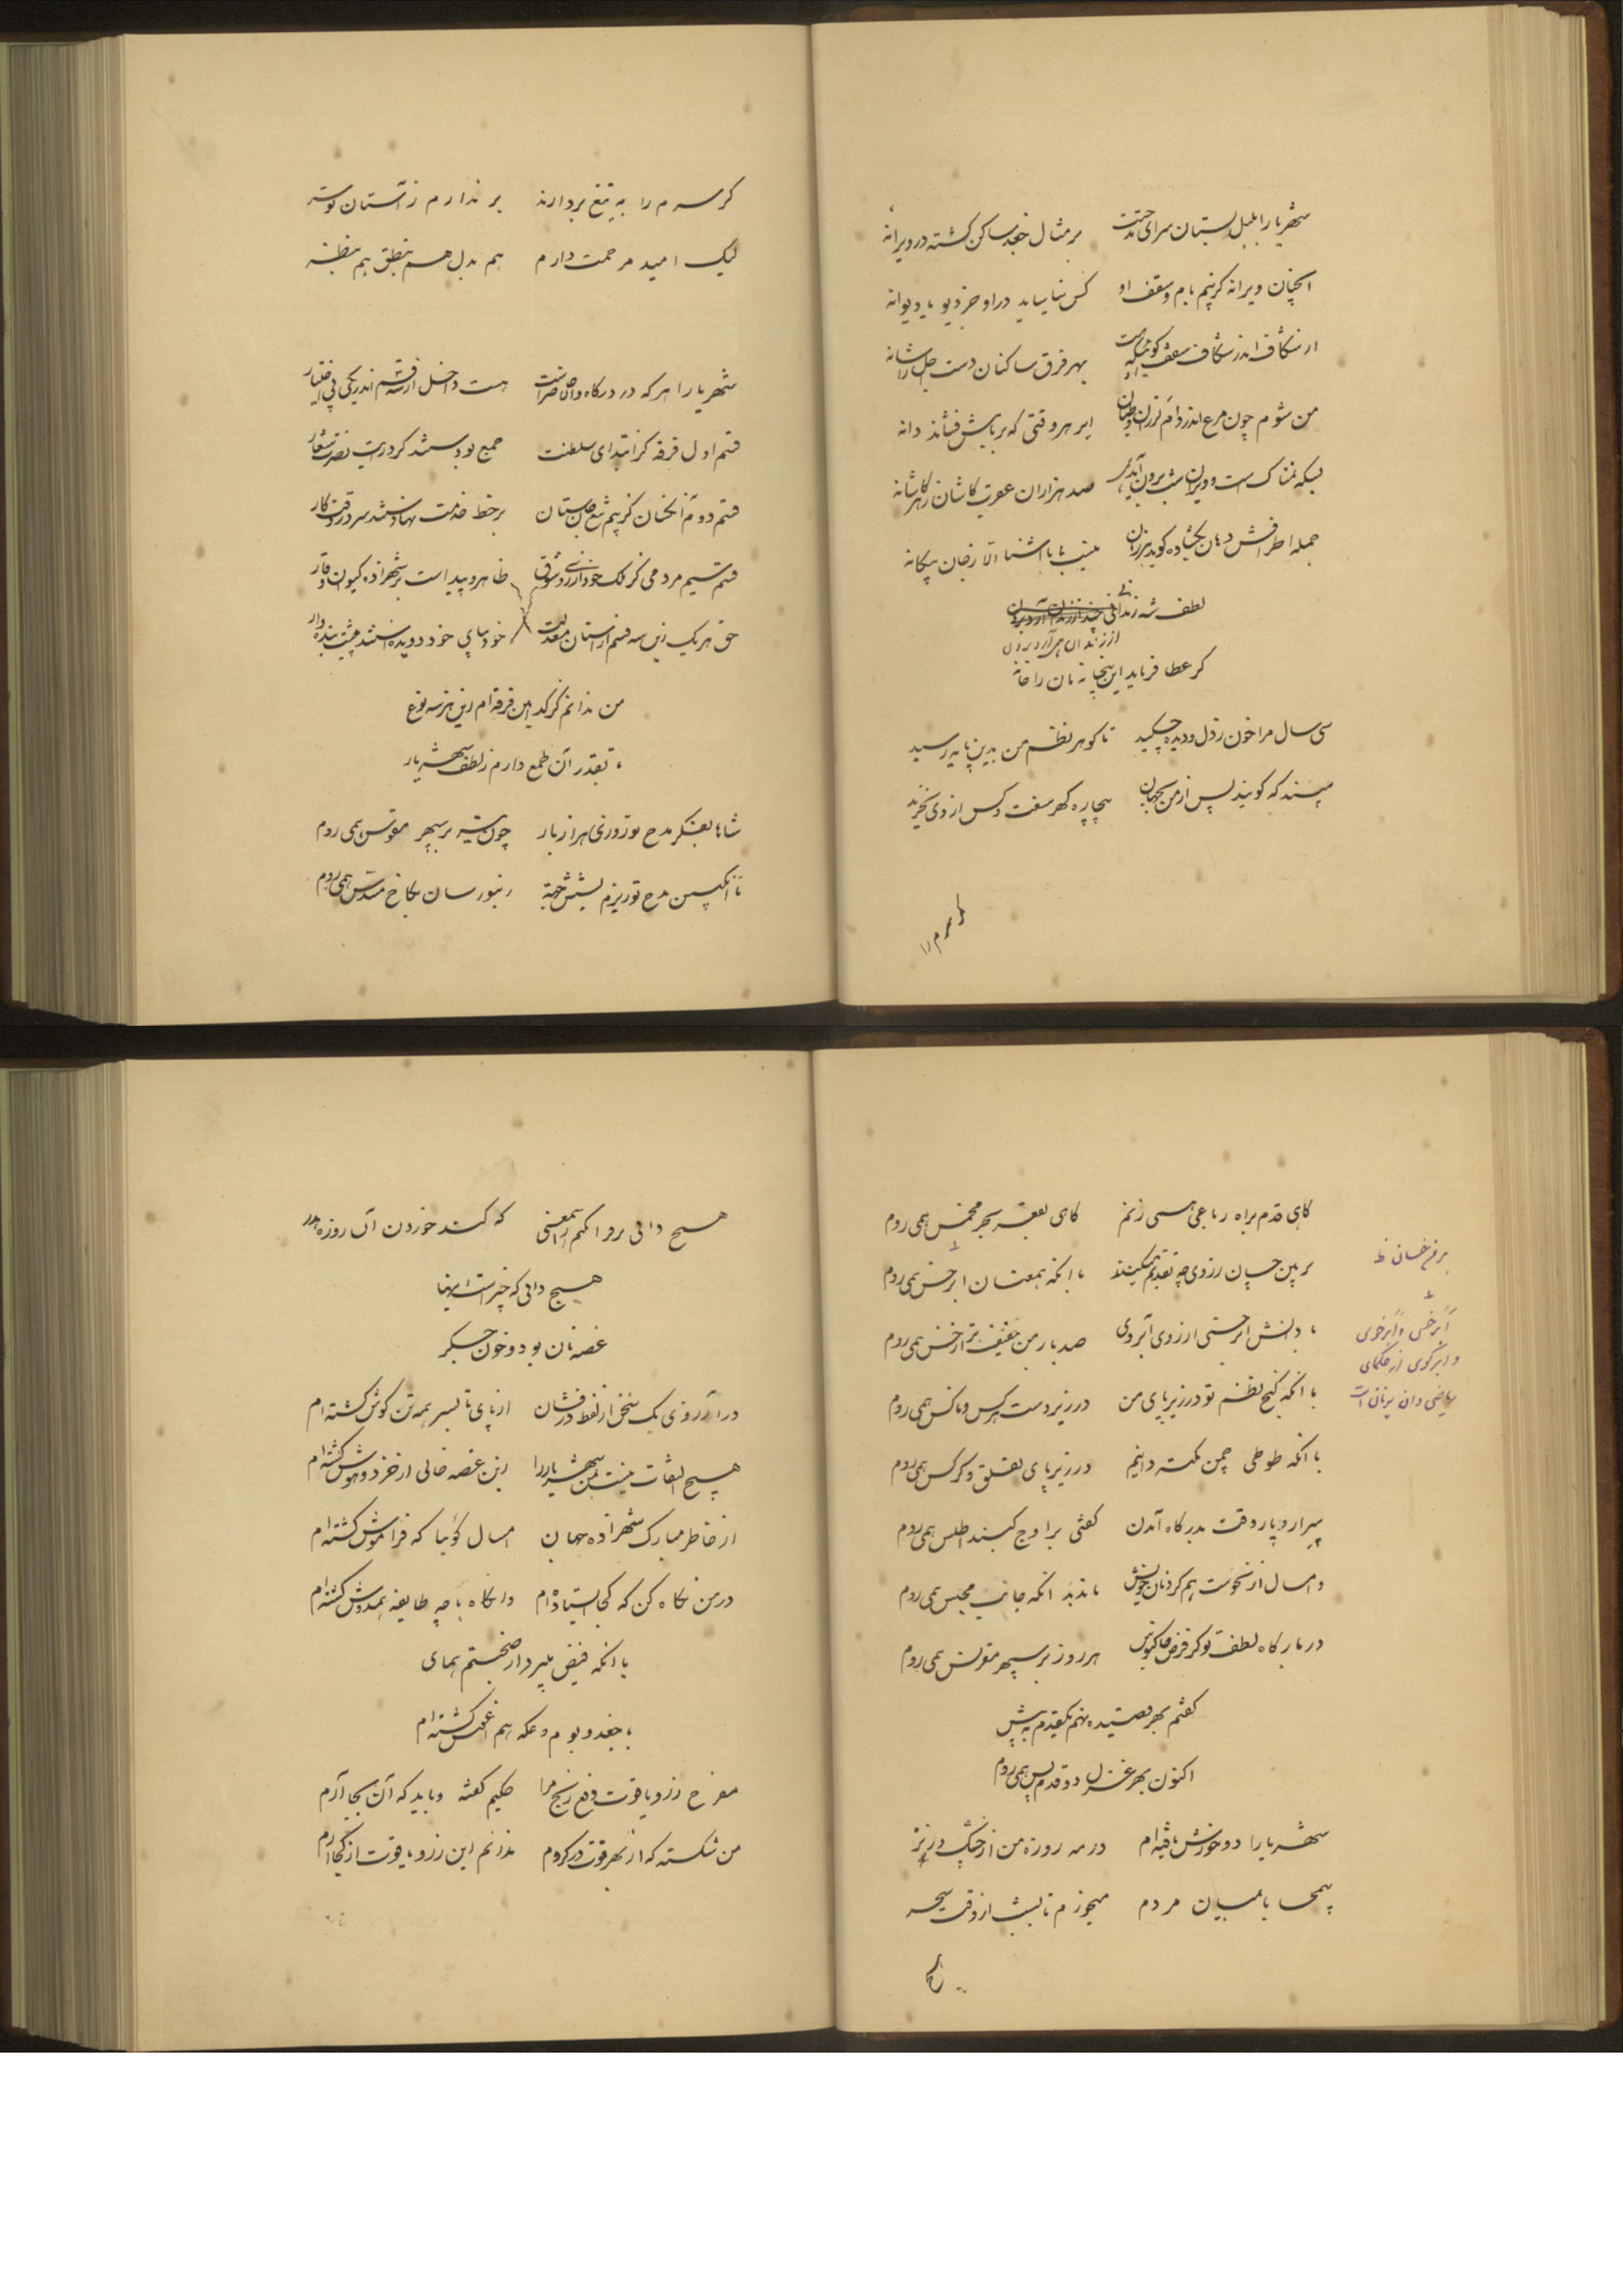 شهریارا بلبل بستان سرای مدحتت بر مثال جغد ساکن گشته در ویرانه
آنچنان ویرانه کز بیم بام و سقف او کس نیاساید در او جز دیو یا دیوانه
از شکاف اندر شکاف سقف بهر فرق ساکنان دست اجل را شانه
من شوم چون مرغ اندر دام لرزان ابر هر وقتی که بر بامش فشاند دانه
بسکه نمناک است و ویران شب برون آید صد هزاران عورت کاشان ز هر کاشانه
جمله اطرافش دهان بگشاده گوید هر زمان نیست با ما آشنا الا ز جان بیگانه
لطف شه زندانی
از زندان برون
گر عطا فرماید این بیخانمان را خانه
سی سال مرا خون ز دل و دیده چکید تا گوهر نظم من بدین پایه رسید
مپسند که گویند پس از من بجهان بیچاره گهر سفت و کس از وی نخرید
گر سرم را به تیغ بردارند بر ندارم ز آستان تو سر
لیک امید مرحمت دارم هم بدل هم بنطق هم بنظر
شهریارا هر که در درگاه والا حاضر است هست داخل از سه قسم اندر یکی بی اختیار
قسم اول فرقه کز ابتدای سلطنت جمع بودستند گرد رایت نصرت شعار
قسم دوم آنچنان کز بیم تیغ جان ستان بر خط خدمت نهادستند سر در وقت کار
قسم سیم مردمی کز ملک خود از روی شوق ظاهر و پیداست بر شهزاده کیوان وقار
حق هر یک زین سه قسم از آستان معدلت خود بپای خود دویدستند پیشت بنده وار
من ندانم کز کدامین فرقه ام زین هر سه نوع
بقدر آن طمع دارم ز لطف شهریار
شاها بفکر مدح تو روزی هزار بار چون بر سپهر مقوس همی روم
تا انگبین مدح تو ریزم بشش جهة زنبور سان بکاخ مسدس همی روم
گاهی قدم براه رباعی همی زنم گاهی بقعر بحر مخمس همی روم
بر من خسان ز روی چه تقدیم میکنند با آنکه همعنان ابرخس همی روم
بر من خسان ظ
با دانش ابرخسی از روی آبروی صد بار من خفیف تر از خس همی روم
ابرخس و ابرخوی
و ابرکوی از حکمای
ریاضی دان یونان است
با آنکه گنج نظم تو در زیر پای من در زیر دست هر کس و ناکس همی روم
با آنکه طوطی چمن نکته دانیم در زیر پای لقلق و کرکس همی روم
پیرار و پار وقت بدرگاه آمدن گفتی بر اوج گنبد اطلس همی روم
و امسال از نحوست هم کردنان خویش مانند آنکه جانب محبس همی روم
در بارگاه لطف تو کز فرض خاکبوس هر روز بر سپهر مقرنس همی روم
گفتم بهر قصیده نهم یکقدم به پیش
اکنون بهر غزل دو قدم پس همی روم
شهریارا دو خورش یافته ام در مه روزه من از خشک و ز تر
بیمحابا بمیان مردم میخورم تا بشب از وقت سحر
هیچ دانی بر وا کنم این معنی که کند خوردن آن روزه هدر
هیچ دانی که چیست اینها
غصه نان بود و خون جگر
در آرزوی یک سخن از لفظ درفشان از پای تا بسر همه تن گوش گشته ام
هیچ التفات نیست بمن شهریار را زین غصه خالی از خرد و هوش گشته ام
از خاطر مبارک شهزاده جهان امسال گوئیا که فراموش گشته ام
در من نگاه کن که کجا ایستاده ام وانگاه با چه طایفه همدوش گشته ام
با آنکه فیض میبرد از صحبتم همای
با جغد و بوم و عکه هم آغوش گشته ام
مفرح زر و یاقوت دفع رنج مرا حکیم گفته و باید که آن بجا آرم
من شکسته که از بهر قوت در گروم ندانم این زر و یاقوت از کجا آرم